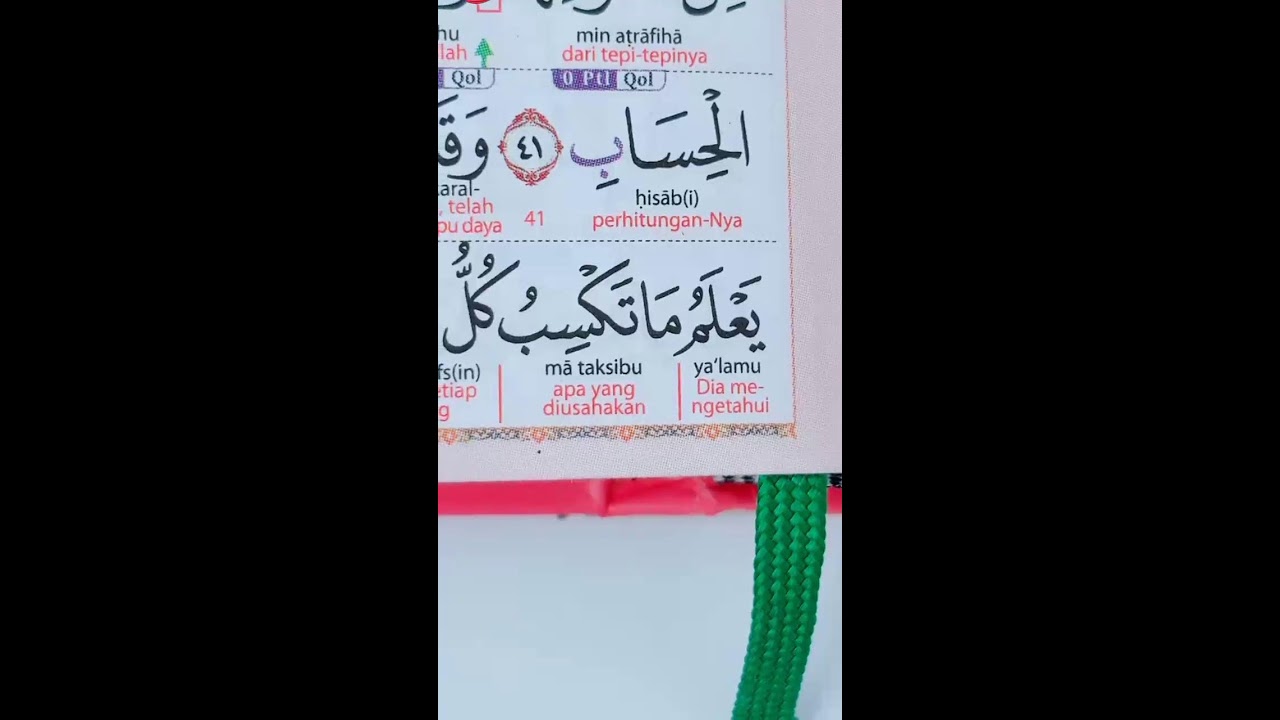 min aṭrāfihā hu
dari tepi-tepinya lah
Qol Qol
الْحِسَابِ ٤١ وَقَ
ḥisāb(i) aral-
perhitungan-Nya 41 , telah
pu daya
يَعْلَمُ مَا تَكْسِبُ كُلُّ
ya‘lamu mā taksibu fs(in)
Dia me- apa yang etiap
ngetahui diusahakan g